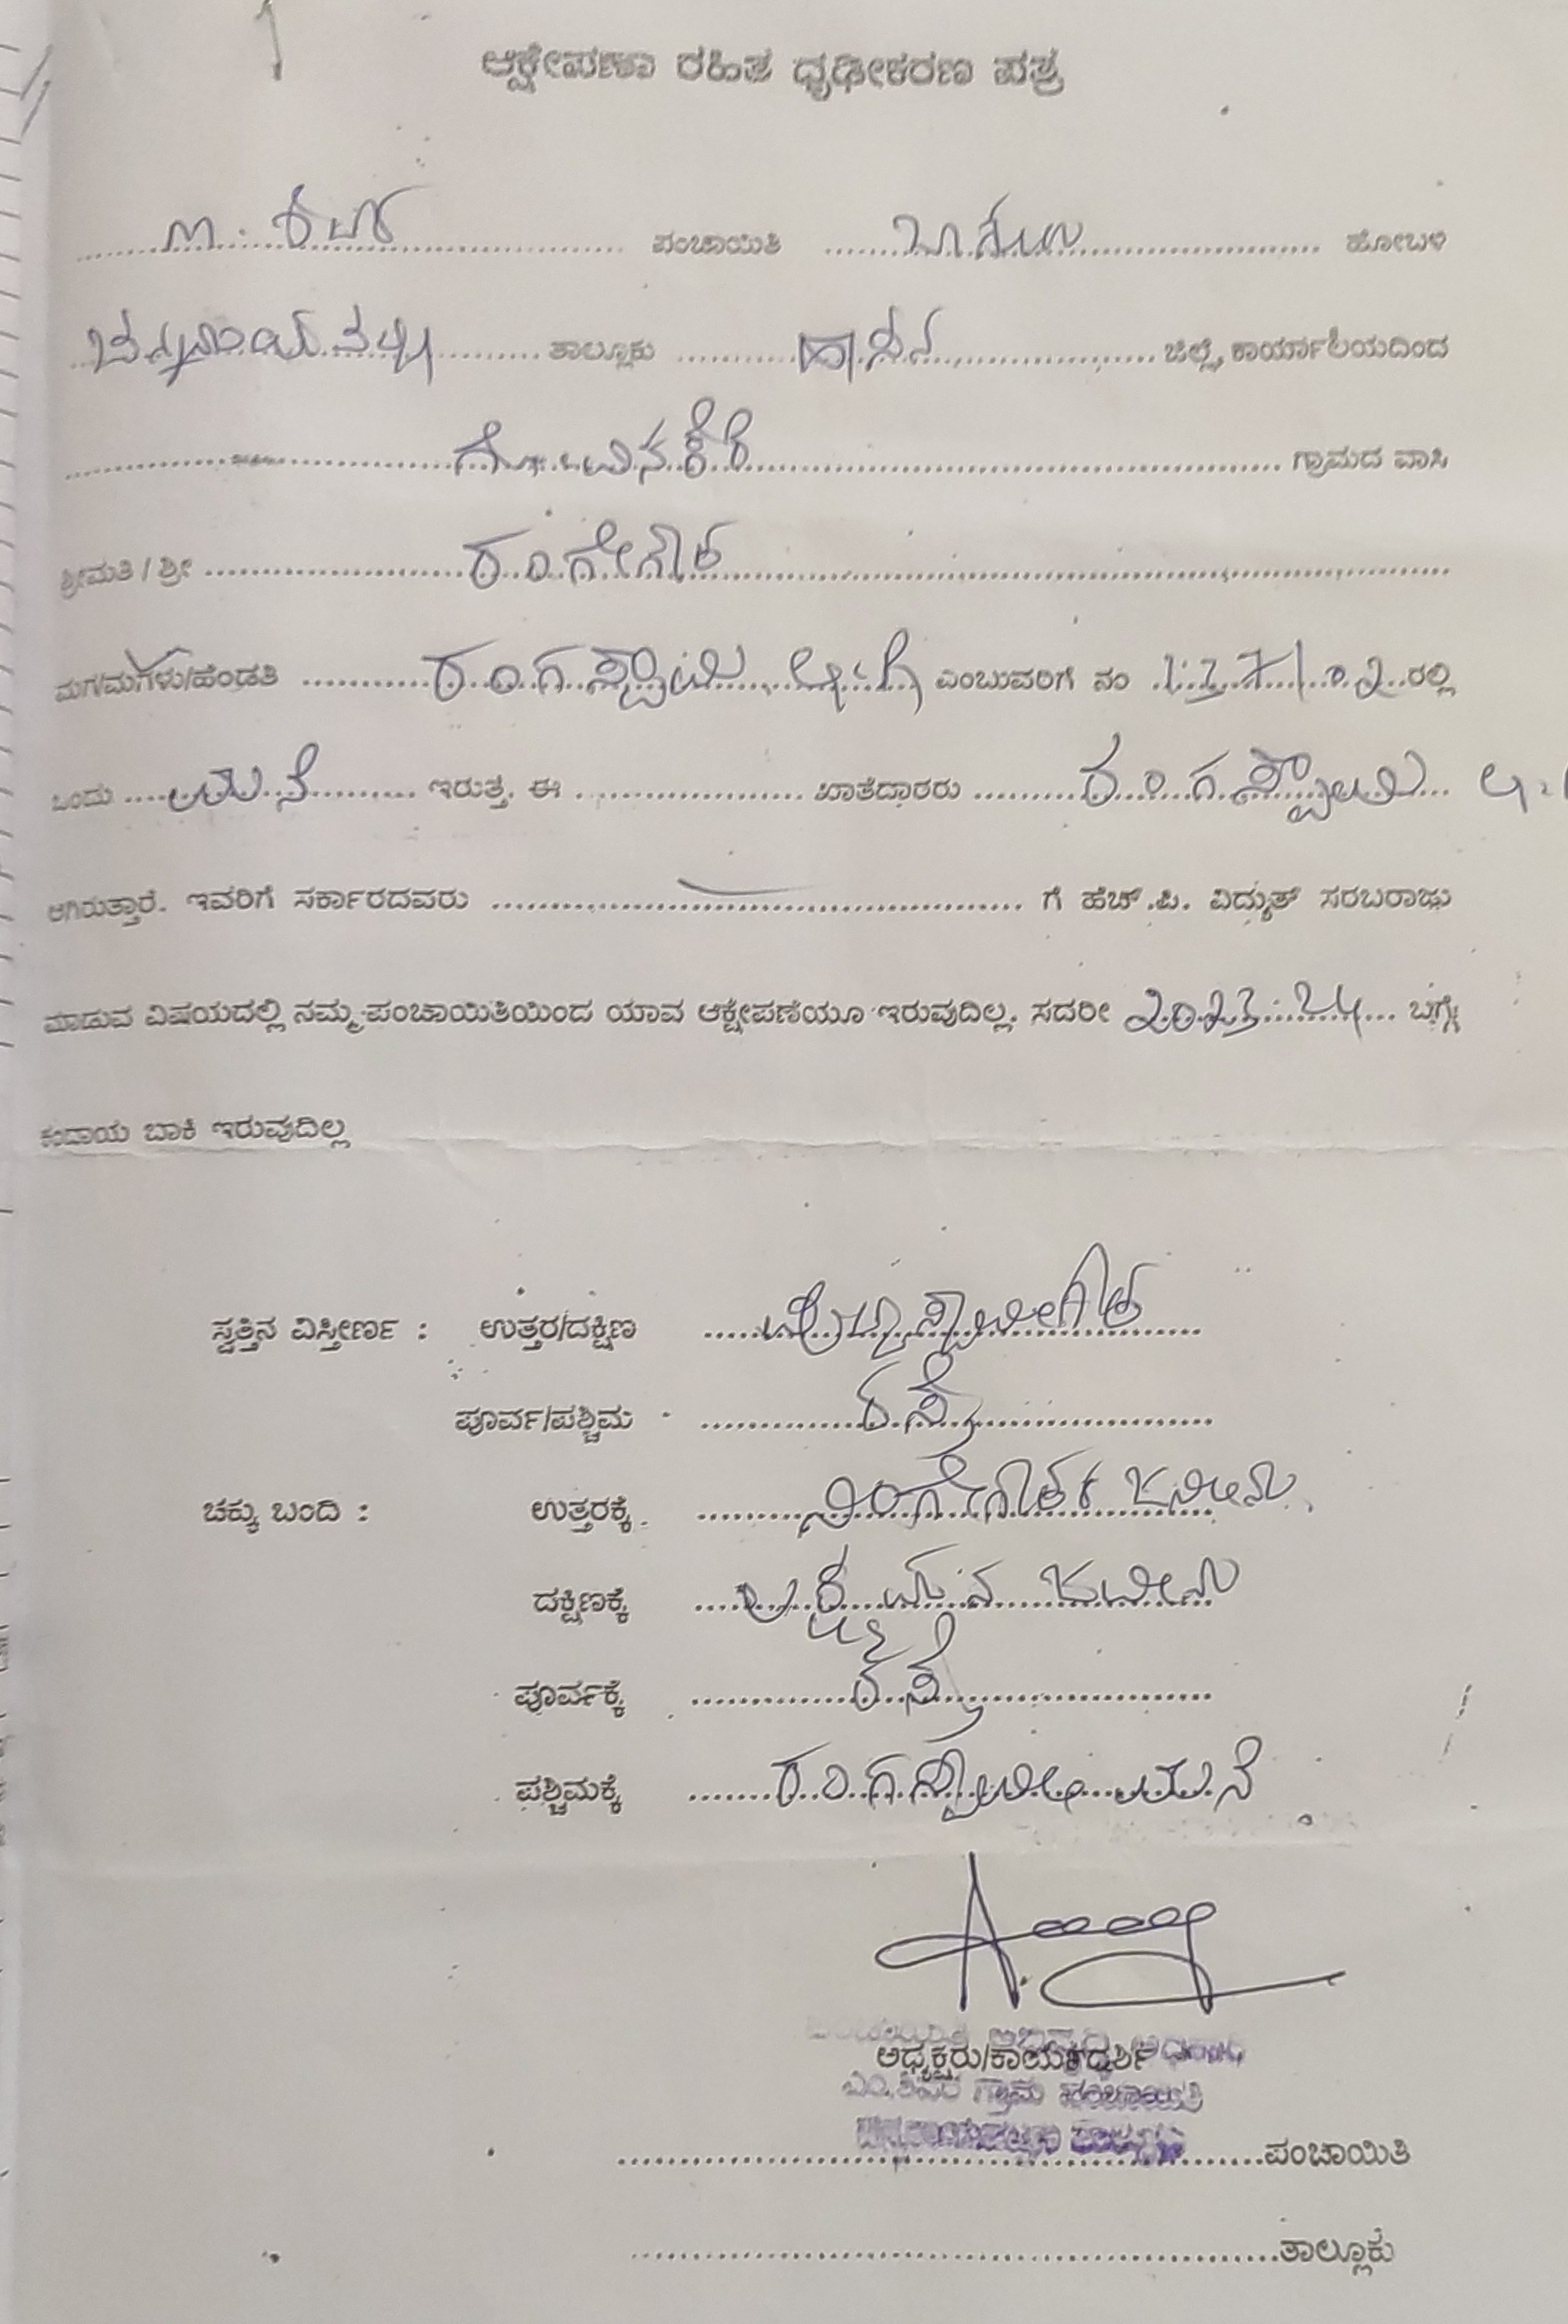 ಆಕ್ಷೇಪಣಾ ರಹಿತ ಧೃಢೀಕರಣ ಪತ್ರ
ಪಂಚಾಯಿತಿ ಬಾಗೂರು ಹೋಬಳಿ
ತಾಲ್ಲೂಕು ಹಾಸನ ಜಿಲ್ಲೆ, ಕಾರ್ಯಾಲಯದಿಂದ
ಗ್ರಾಮದ ವಾಸಿ
ಶ್ರೀಮತಿ / ಶ್ರೀ ರಂಗೇಗೌಡ
ಮಗ/ಮಗಳು/ಹೆಂಡತಿ ರಂಗಸ್ವಾಮಿ ಎಂಬುವರಿಗೆ ನಂ ರಲ್ಲಿ
ಒಂದು ಮನೆ ಇರುತ್ತೆ. ಈ ಖಾತೆದಾರರು ರಂಗಸ್ವಾಮಿ
ಆಗಿರುತ್ತಾರೆ. ಇವರಿಗೆ ಸರ್ಕಾರದವರು ಗೆ ಹೆಚ್.ಪಿ. ವಿದ್ಯುತ್ ಸರಬರಾಜು
ಮಾಡುವ ವಿಷಯದಲ್ಲಿ ನಮ್ಮ ಪಂಚಾಯಿತಿಯಿಂದ ಯಾವ ಆಕ್ಷೇಪಣೆಯೂ ಇರುವುದಿಲ್ಲ. ಸದರೀ 2023-24 ಬಗ್ಗೆ
ಕಂದಾಯ ಬಾಕಿ ಇರುವುದಿಲ್ಲ
ಸ್ವತ್ತಿನ ವಿಸ್ತೀರ್ಣ : ಉತ್ತರ/ದಕ್ಷಿಣ
ಪೂರ್ವ/ಪಶ್ಚಿಮ ರಸ್ತೆ
ಚಕ್ಕು ಬಂದಿ : ಉತ್ತರಕ್ಕೆ ನಿಂಗೇಗೌಡರ ಜಮೀನು
ದಕ್ಷಿಣಕ್ಕೆ ಜಮೀನು
ಪೂರ್ವಕ್ಕೆ ರಸ್ತೆ
ಪಶ್ಚಿಮಕ್ಕೆ ರಂಗಸ್ವಾಮಿ ಮನೆ
ಅಧ್ಯಕ್ಷರು/ಕಾರ್ಯದರ್ಶಿ
ಗ್ರಾಮ ಪಂಚಾಯಿತಿ
ಪಂಚಾಯಿತಿ
ತಾಲ್ಲೂಕು